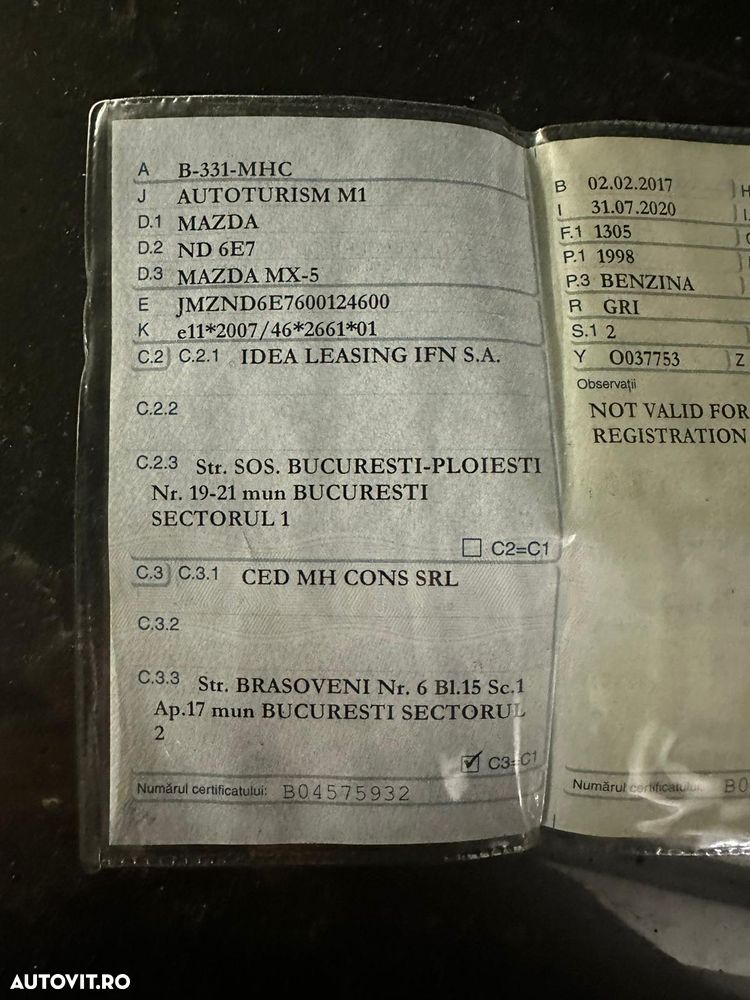 A B-331-MHC
J AUTOTURISM M1
D.1 MAZDA
D.2 ND 6E7
D.3 MAZDA MX-5
E JMZND6E7600124600
K e11*2007/46*2661*01
C.2 C.2.1 IDEA LEASING IFN S.A.
C.2.2
C.2.3 Str. SOS. BUCURESTI-PLOIESTI
Nr. 19-21 mun BUCURESTI
SECTORUL 1
C2=C1
C.3 C.3.1 CED MH CONS SRL
C.3.2
C.3.3 Str. BRASOVENI Nr. 6 Bl.15 Sc.1
Ap.17 mun BUCURESTI SECTORUL
2
C3=C1
Numărul certificatului: B04575932
B 02.02.2017 H
I 31.07.2020
F.1 1305
P.1 1998
P.3 BENZINA
R GRI
S.1 2
Y O037753 Z
Observații
NOT VALID FOR
REGISTRATION
Numărul certificatului: B0
AUTOVIT.RO